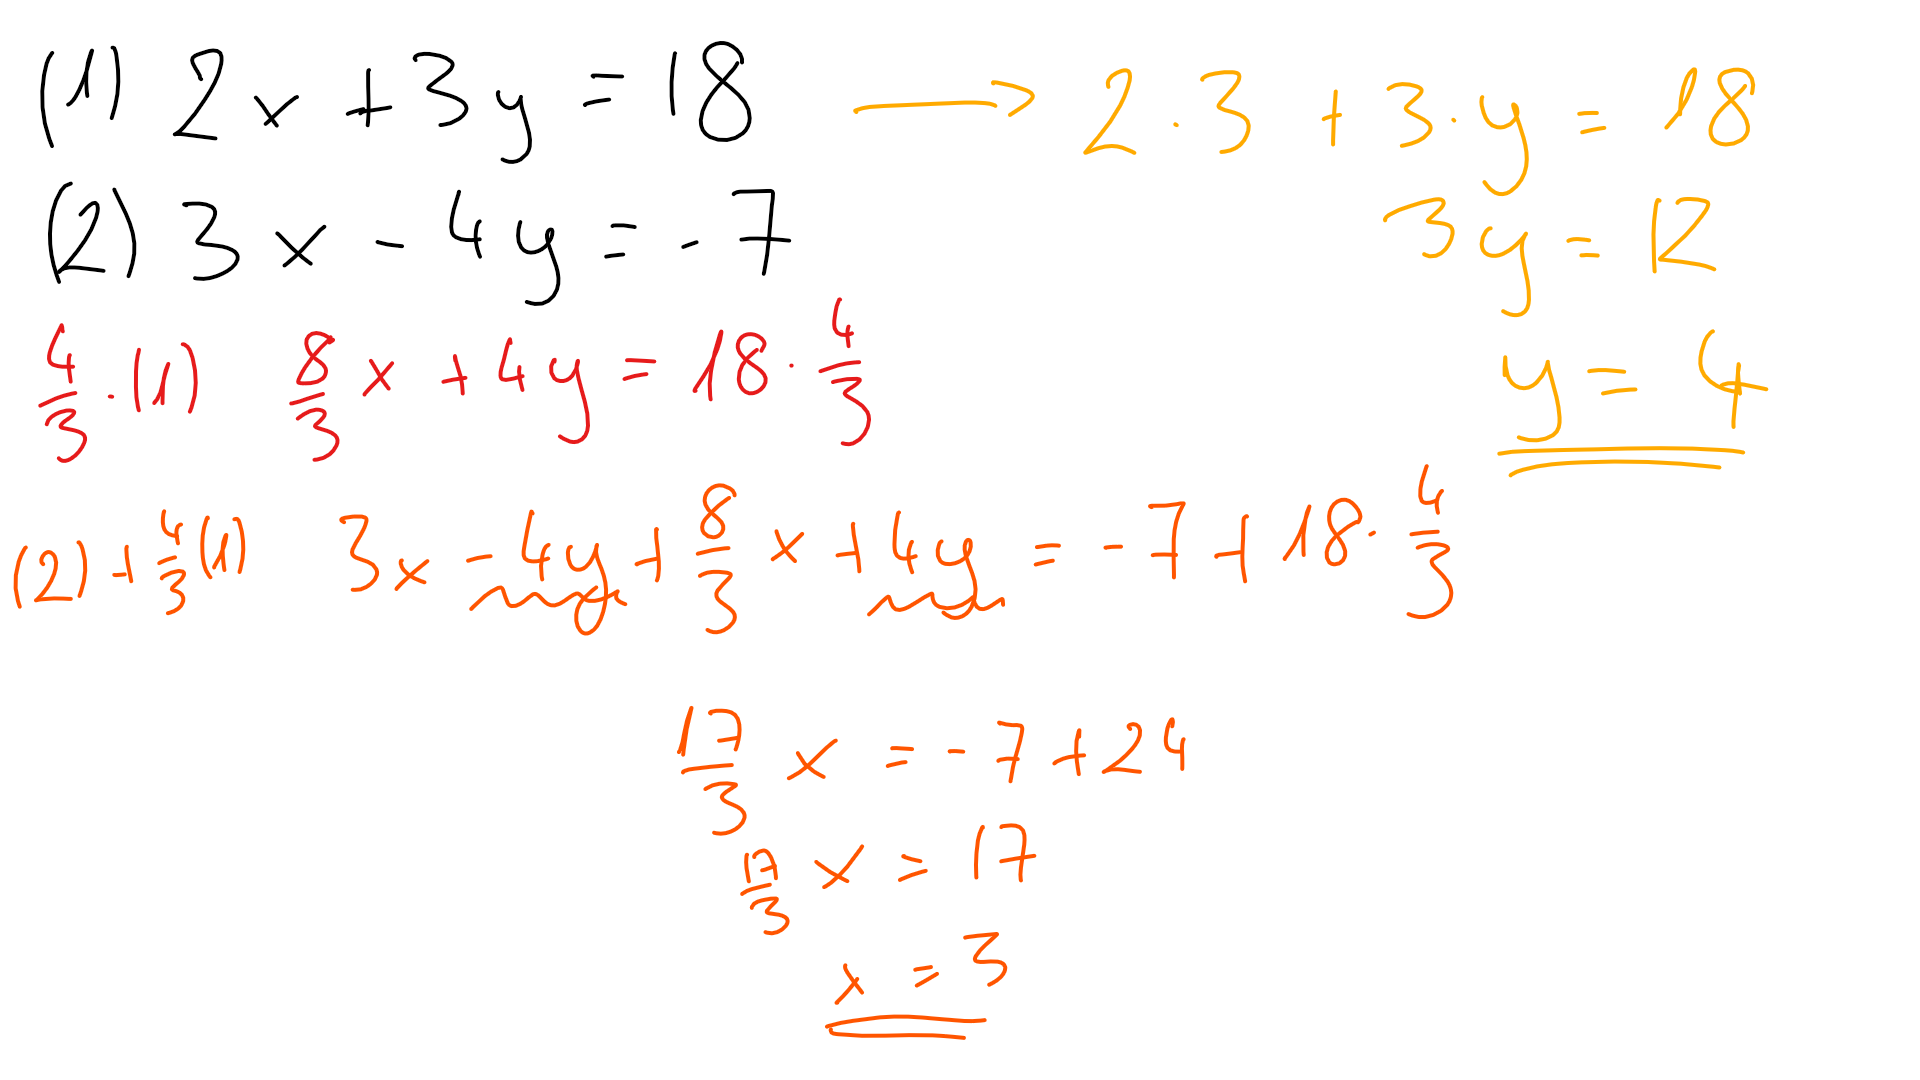 (1) 2x + 3y = 18 → 2 · 3 + 3 · y = 18
(2) 3x - 4y = -7
3y = 12
4/3 · (1) 8/3 x + 4y = 18 · 4/3
y = 4
(2) + 4/3 (1) 3x - 4y + 8/3 x + 4y = -7 + 18 · 4/3
17/3 x = -7 + 24
17/3 x = 17
x = 3